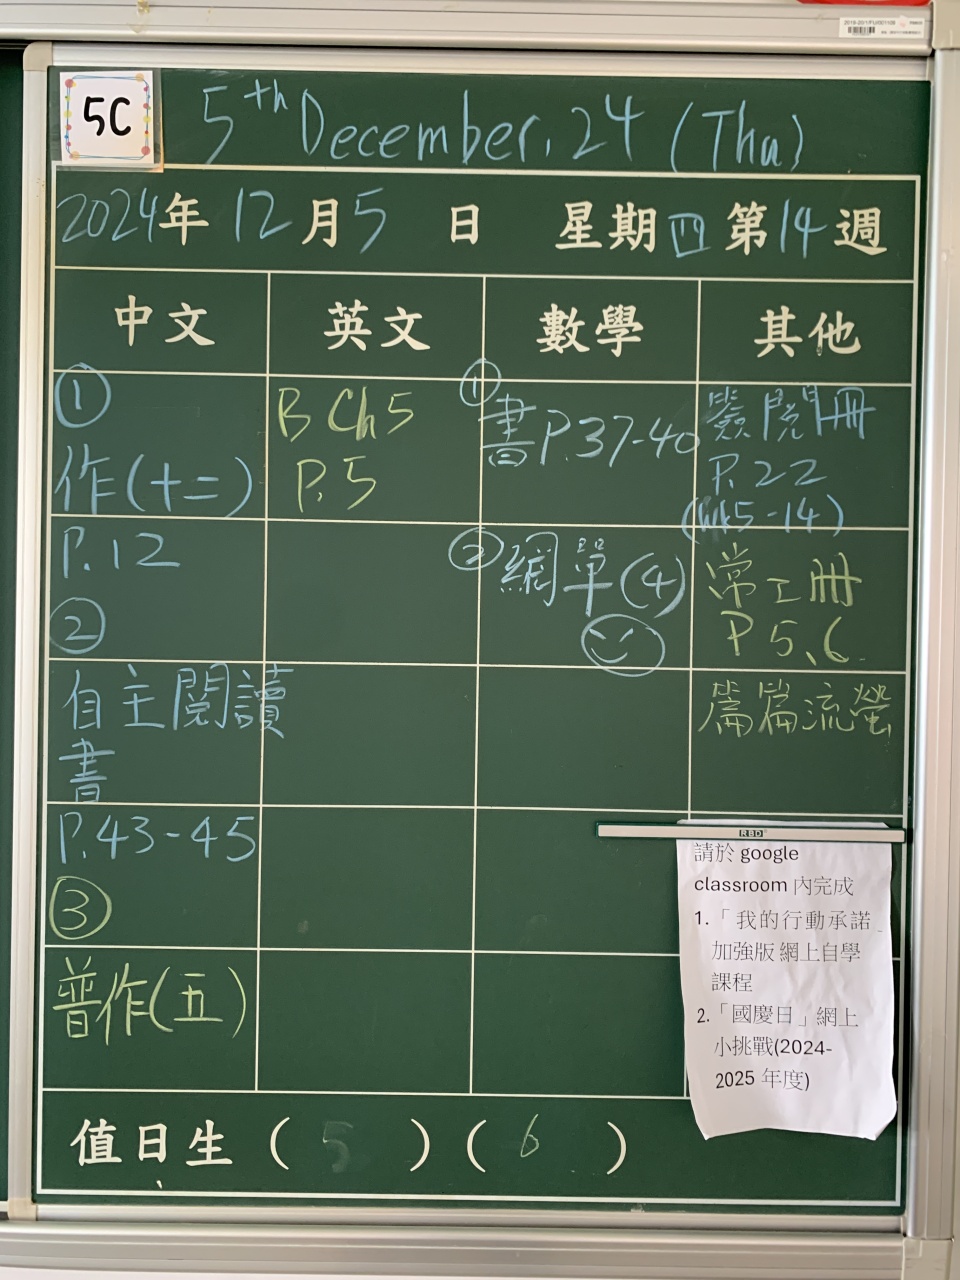 5C
5th December. 24 (Thu)
2024年 12月5日 星期四 第14週
中文 英文 數學 其他
①
作(十二)
P.12
②
自主閱讀
書
P.43-45
③
普作(五)
B Ch5
P.5
① 書P.37-40
② 網單(4)
閱冊
P.22
(Wk5-14)
常工冊
P 5、6
篇篇流螢
RBD
請於 google
classroom 內完成
1.「我的行動承諾
加強版 網上自學
課程
2.「國慶日」網上
小挑戰(2024-
2025 年度)
值日生 ( 5 ) ( 6 )